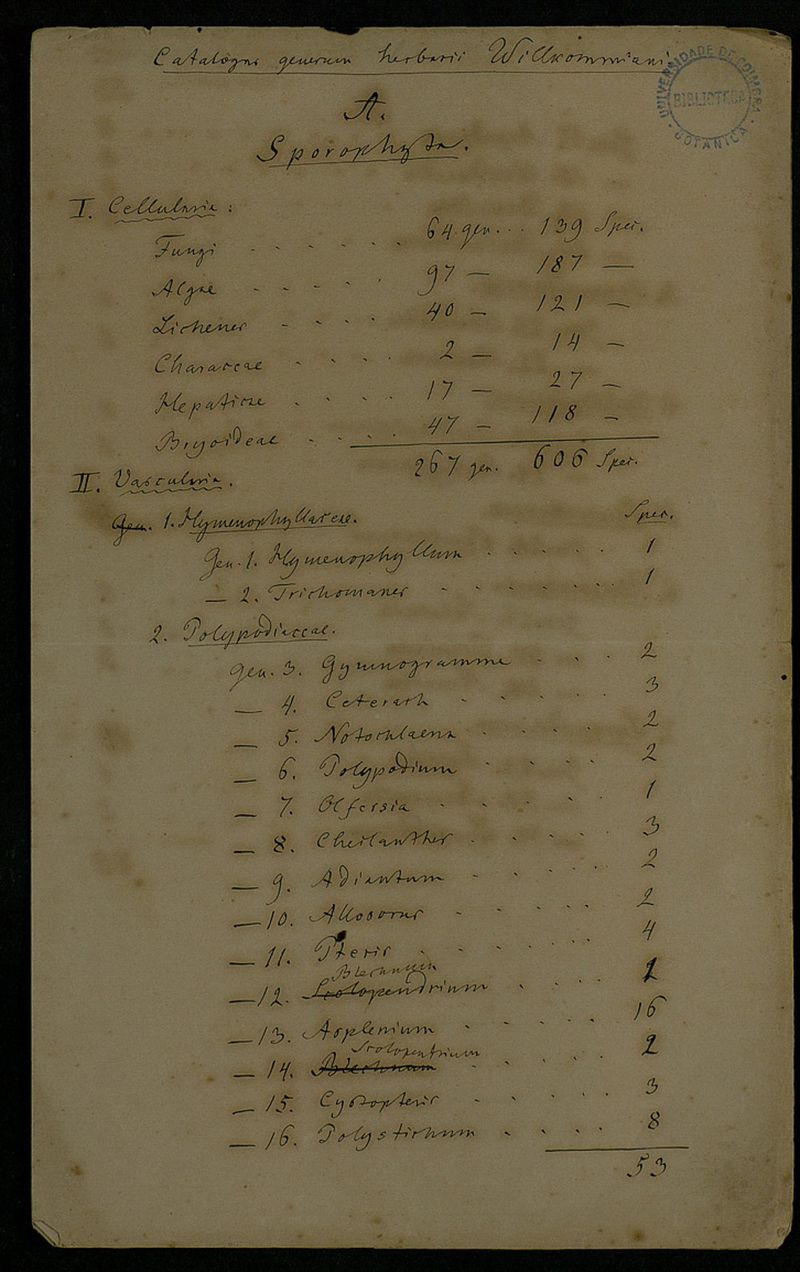 Catalogus generum herbarii Willkommiani
UNIVERSIDADE DE COIMBRA
BIBLIOTECA
BOTANICA
A.
Sporophyta.
I. Cellularia :
Fungi - - - - - 64 gen. . . 139 Spec.
Algae - - - - - 97 — 187 —
Lichenes - - - - 40 — 121 —
Characeae - - - - 2 — 14 —
Hepaticae - - - - 17 — 27 —
Bryoideae - - - - 47 — 118 —
267 gen. 606 Spec.
II. Vascularia.
Gen. 1. Hymenophyllaceae. Spec.
Gen. 1. Hymenophyllum - - - - - 1
— 2. Trichomanes - - - - - - 1
2. Polypodiaceae.
Gen. 3. Gymnogramme - - - 2
— 4. Ceterach - - - - - 3
— 5. Notochlaena - - - - 2
— 6. Polypodium - - - - 2
— 7. Olfersia - - - - - 1
— 8. Cheilanthes - - - - - 3
— 9. Adiantum - - - - - 2
— 10. Allosorus - - - - - 2
— 11. Pteris - - - - - - 4
Blechnum
— 12. Scolopendrium - - - - 2
— 13. Asplenium - - - - - 16
Scolopendrium
— 14. Blechnum - - - - - 2
— 15. Cystopteris - - - - - 3
— 16. Polystichum - - - - 8
53